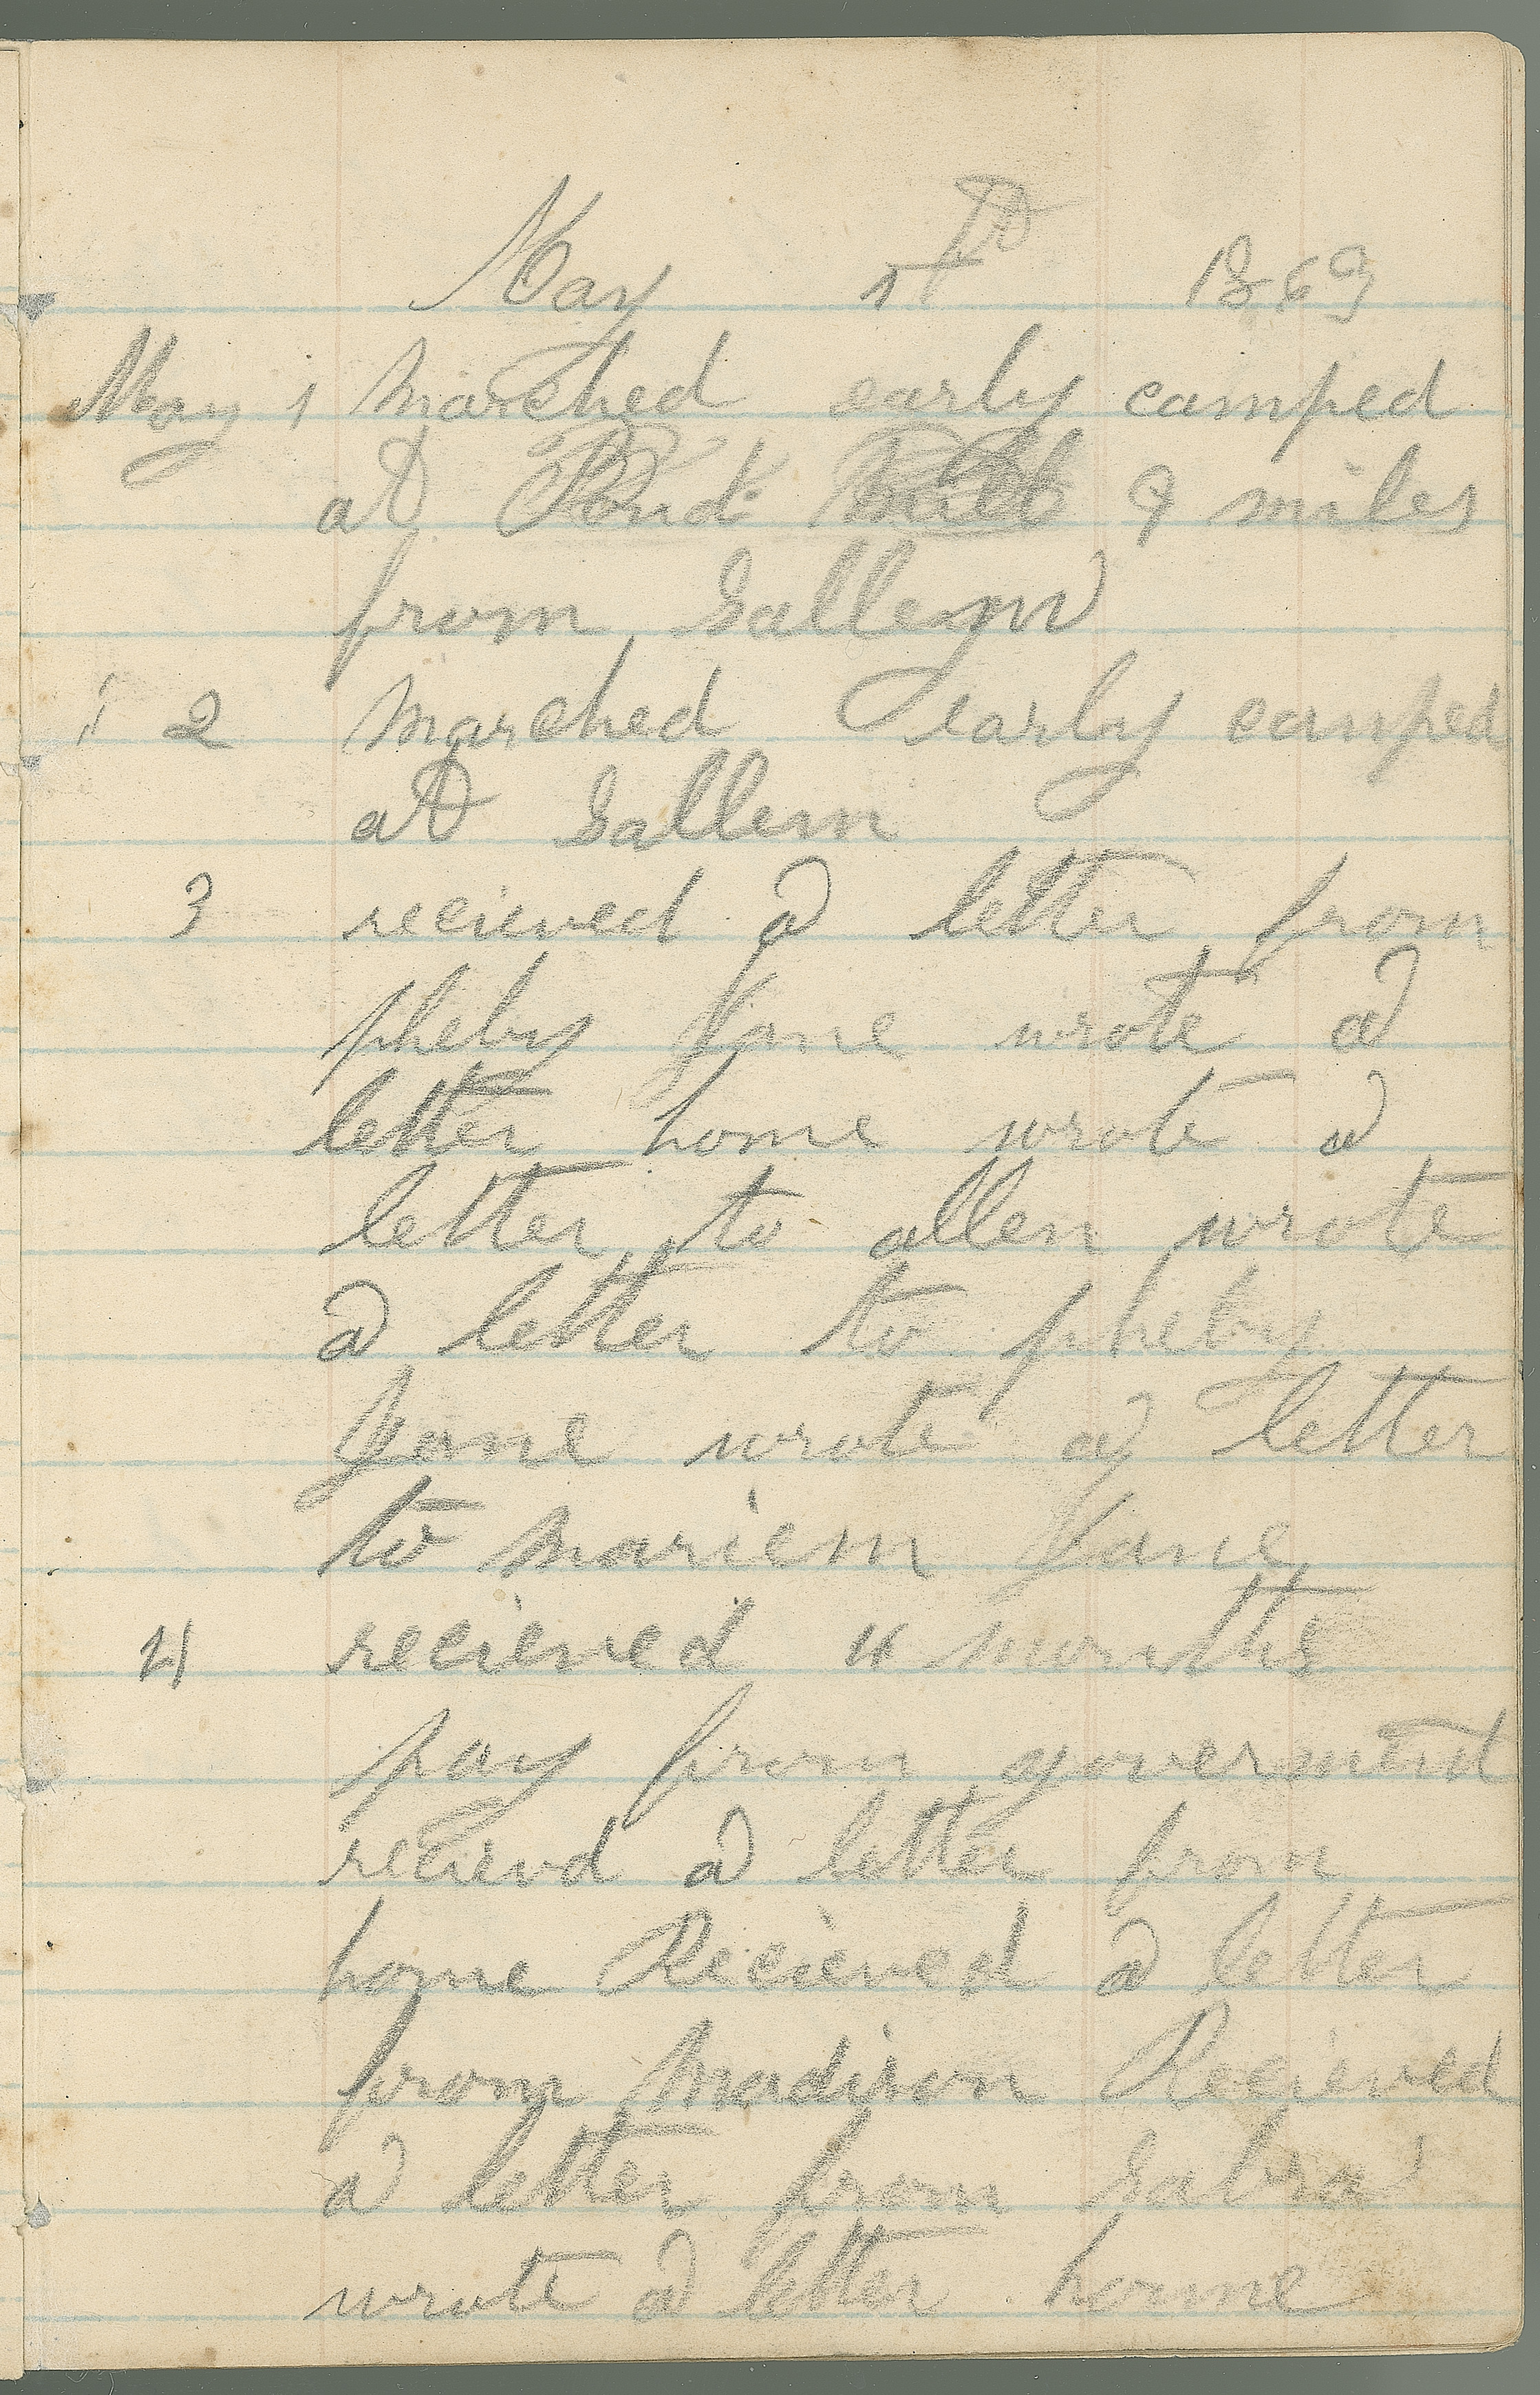 May 1st 1863
May 1 marched early camped
at Pond 9 miles
from Sallem
" 2 marched early camped
at Sallem
3 recieved a letter from
pheby Jane wrote a
letter home wrote a
letter to allen wrote
a letter to pheby
Jane wrote a letter
to mariem Jane
4 recieved 4 months
pay from goverment
recievd a letter from
home Recieved a letter
from madison Recieved
a letter from Sabra
wrote a letter home